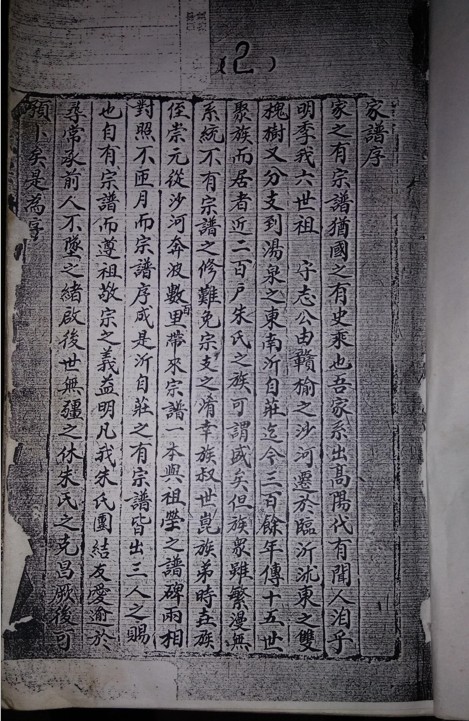 (2)
家譜序
家之有宗譜猶國之有史乘也吾家系出高陽代有聞人洎乎
明季我六世祖 守志公由贛榆之沙河遷於臨沂沭東之雙
槐樹又分支到湯泉之東南沂自莊迄今三百餘年傳十五世
聚族而居者近二百戶朱氏之族可謂盛矣但族衆雖繁漫無
系統不有宗譜之修難免宗支之淆幸族叔世崑族弟時垚族
侄崇元從沙河奔波數百里帶來宗譜一本與祖塋之譜碑兩相
對照不匝月而宗譜序成是沂自莊之有宗譜皆出三人之賜
也自有宗譜而遵祖敬宗之義益明凡我朱氏團結友愛逾於
尋常承前人不墜之緒啟後世無疆之休朱氏之克昌厥後可
預卜矣是為序